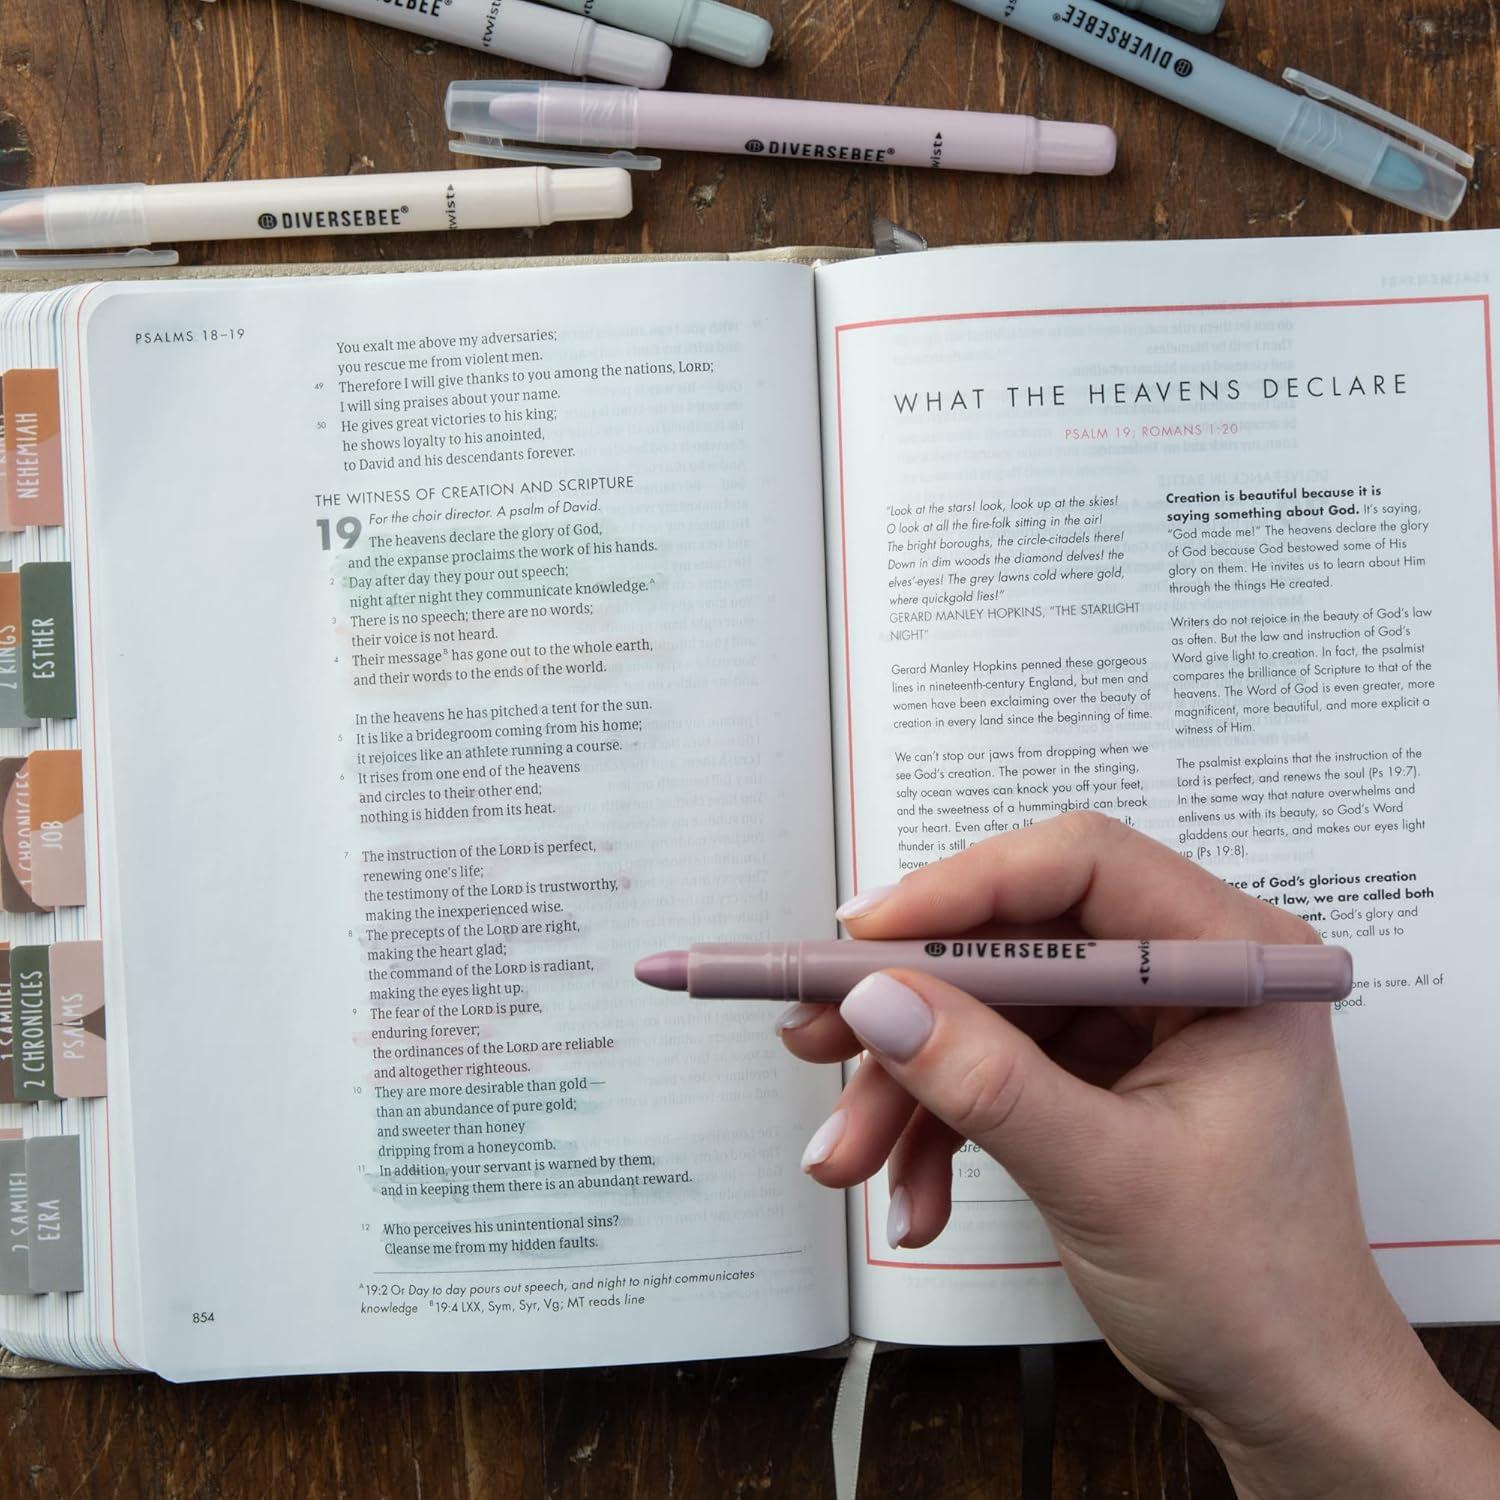 DIVERSEBEE®
twist
DIVERSEBEE®
twist
DIVERSEBEE®
twist
DIVERSEBEE®
twist
NEHEMIAH
2 KINGS
ESTHER
1 CHRONICLES
JOB
1 SAMUEL
2 CHRONICLES
PSALMS
2 SAMUEL
EZRA
PSALMS 18–19
You exalt me above my adversaries;
you rescue me from violent men.
49 Therefore I will give thanks to you among the nations, LORD;
I will sing praises about your name.
50 He gives great victories to his king;
he shows loyalty to his anointed,
to David and his descendants forever.
THE WITNESS OF CREATION AND SCRIPTURE
19 For the choir director. A psalm of David.
The heavens declare the glory of God,
and the expanse proclaims the work of his hands.
2 Day after day they pour out speech;
night after night they communicate knowledge.A
3 There is no speech; there are no words;
their voice is not heard.
4 Their messageB has gone out to the whole earth,
and their words to the ends of the world.
In the heavens he has pitched a tent for the sun.
5 It is like a bridegroom coming from his home;
it rejoices like an athlete running a course.
6 It rises from one end of the heavens
and circles to their other end;
nothing is hidden from its heat.
7 The instruction of the LORD is perfect,
renewing one's life;
the testimony of the LORD is trustworthy,
making the inexperienced wise.
8 The precepts of the LORD are right,
making the heart glad;
the command of the LORD is radiant,
making the eyes light up.
9 The fear of the LORD is pure,
enduring forever;
the ordinances of the LORD are reliable
and altogether righteous.
10 They are more desirable than gold —
than an abundance of pure gold;
and sweeter than honey
dripping from a honeycomb.
11 In addition, your servant is warned by them,
and in keeping them there is an abundant reward.
12 Who perceives his unintentional sins?
Cleanse me from my hidden faults.
A 19:2 Or Day to day pours out speech, and night to night communicates
knowledge B 19:4 LXX, Sym, Syr, Vg; MT reads line
854
WHAT THE HEAVENS DECLARE
PSALM 19; ROMANS 1:20
"Look at the stars! look, look up at the skies!
O look at all the fire-folk sitting in the air!
The bright boroughs, the circle-citadels there!
Down in dim woods the diamond delves! the
elves'-eyes! The grey lawns cold where gold,
where quickgold lies!"
GERARD MANLEY HOPKINS, "THE STARLIGHT
NIGHT"
Gerard Manley Hopkins penned these gorgeous
lines in nineteenth-century England, but men and
women have been exclaiming over the beauty of
creation in every land since the beginning of time.
We can't stop our jaws from dropping when we
see God's creation. The power in the stinging,
salty ocean waves can knock you off your feet,
and the sweetness of a hummingbird can break
your heart. Even after a it,
thunder is still
1:20
Creation is beautiful because it is
saying something about God. It's saying,
"God made me!" The heavens declare the glory
of God because God bestowed some of His
glory on them. He invites us to learn about Him
through the things He created.
Writers do not rejoice in the beauty of God's law
as often. But the law and instruction of God's
Word give light to creation. In fact, the psalmist
compares the brilliance of Scripture to that of the
heavens. The Word of God is even greater, more
magnificent, more beautiful, and more explicit a
witness of Him.
The psalmist explains that the instruction of the
Lord is perfect, and renews the soul (Ps 19:7).
In the same way that nature overwhelms and
enlivens us with its beauty, so God's Word
gladdens our hearts, and makes our eyes light
up (Ps 19:8).
of God's glorious creation
law, we are called both
God's glory and
sun, call us to
one is sure. All of
good.
DIVERSEBEE®
twist